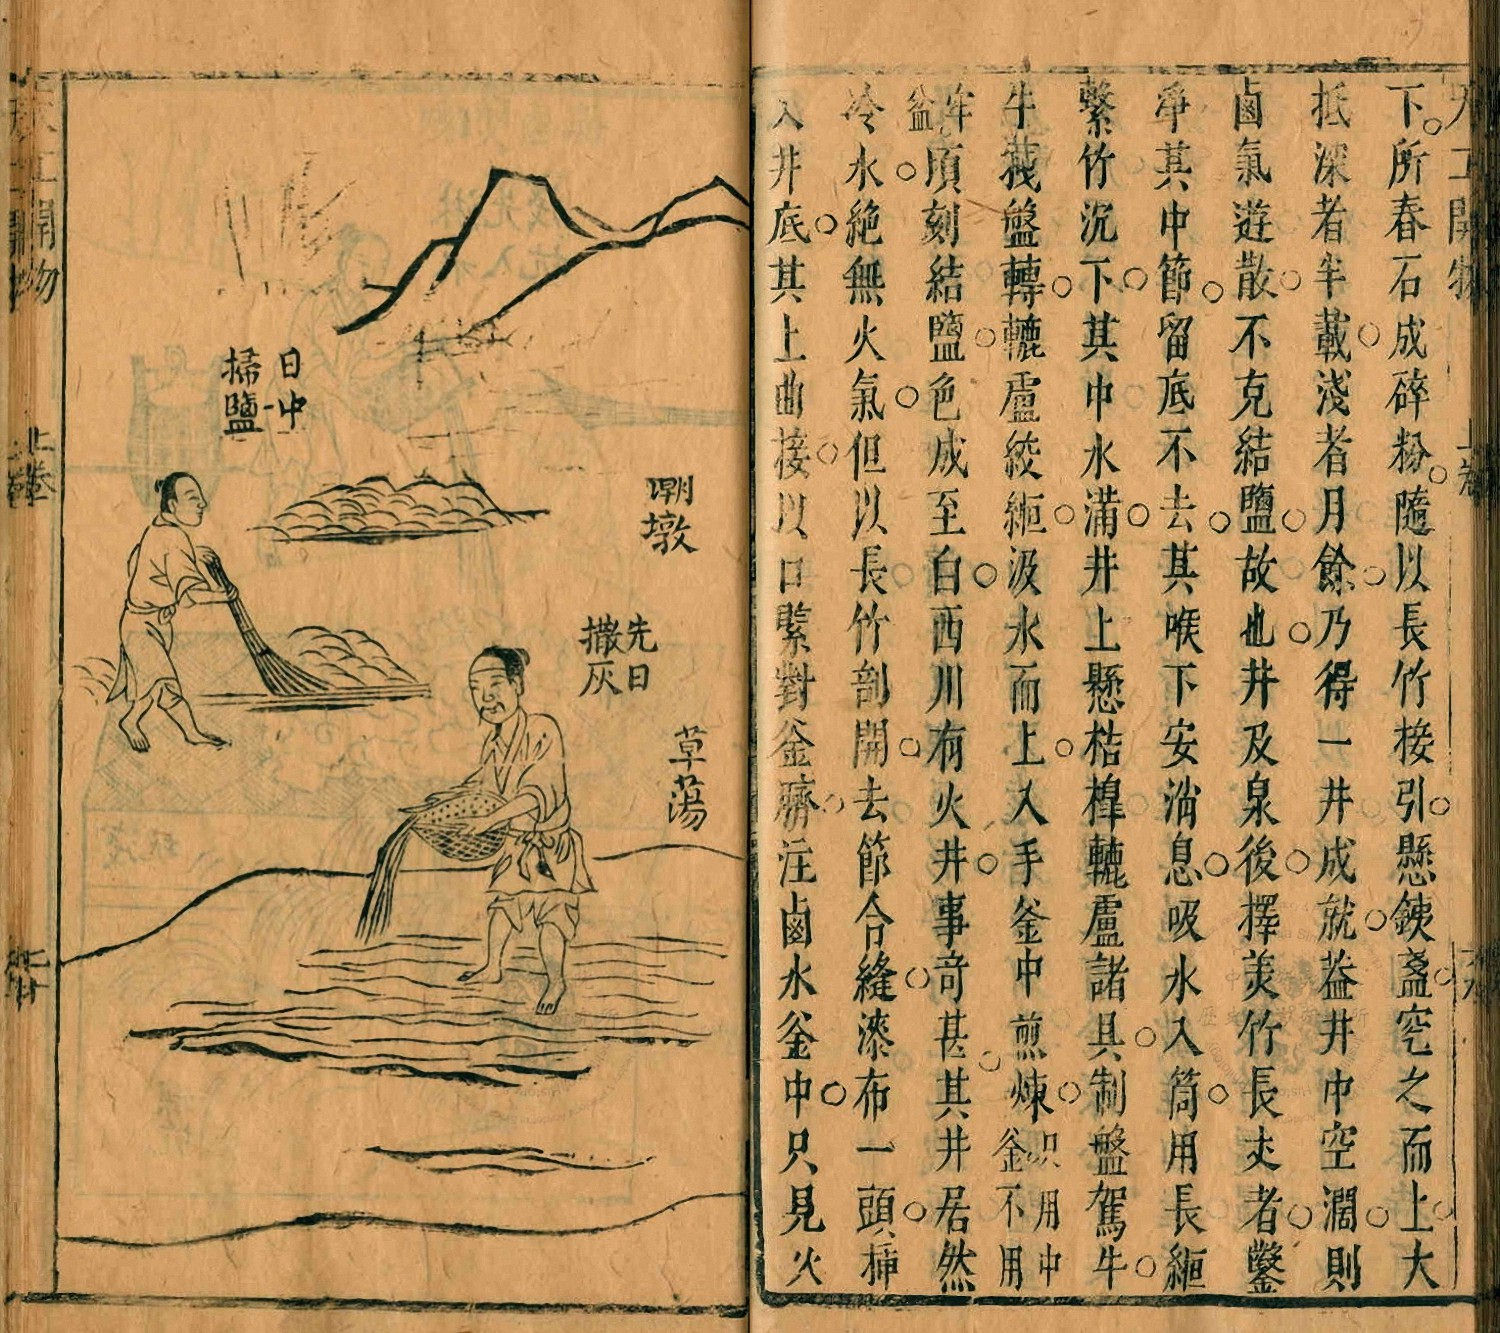 天工開物
上卷
下所春石成碎粉隨以長竹接引懸銕盞空之而上大
抵深者半載淺者月餘乃得一井成就葢井中空濶則
鹵氣遊散不克結鹽故也井及泉後擇美竹長丈者鑿
凈其中節留底不去其喉下安消息吸水入筒用長緪
繫竹沉下其中水滿井上懸桔槹轆盧諸具制盤駕牛
牛拽盤轉轆盧絞緪汲水而上入手釜中煎煉只用中
釜不用
牢
盆頃刻結鹽色成至白西川有火井事奇甚其井居然
冷水絕無火氣但以長竹剖開去節合縫漆布一頭插
入井底其上曲接以口緊對釜臍注鹵水釜中只見火
潮墩
草蕩
先日
撒灰
日中
掃鹽
天工開物
上卷